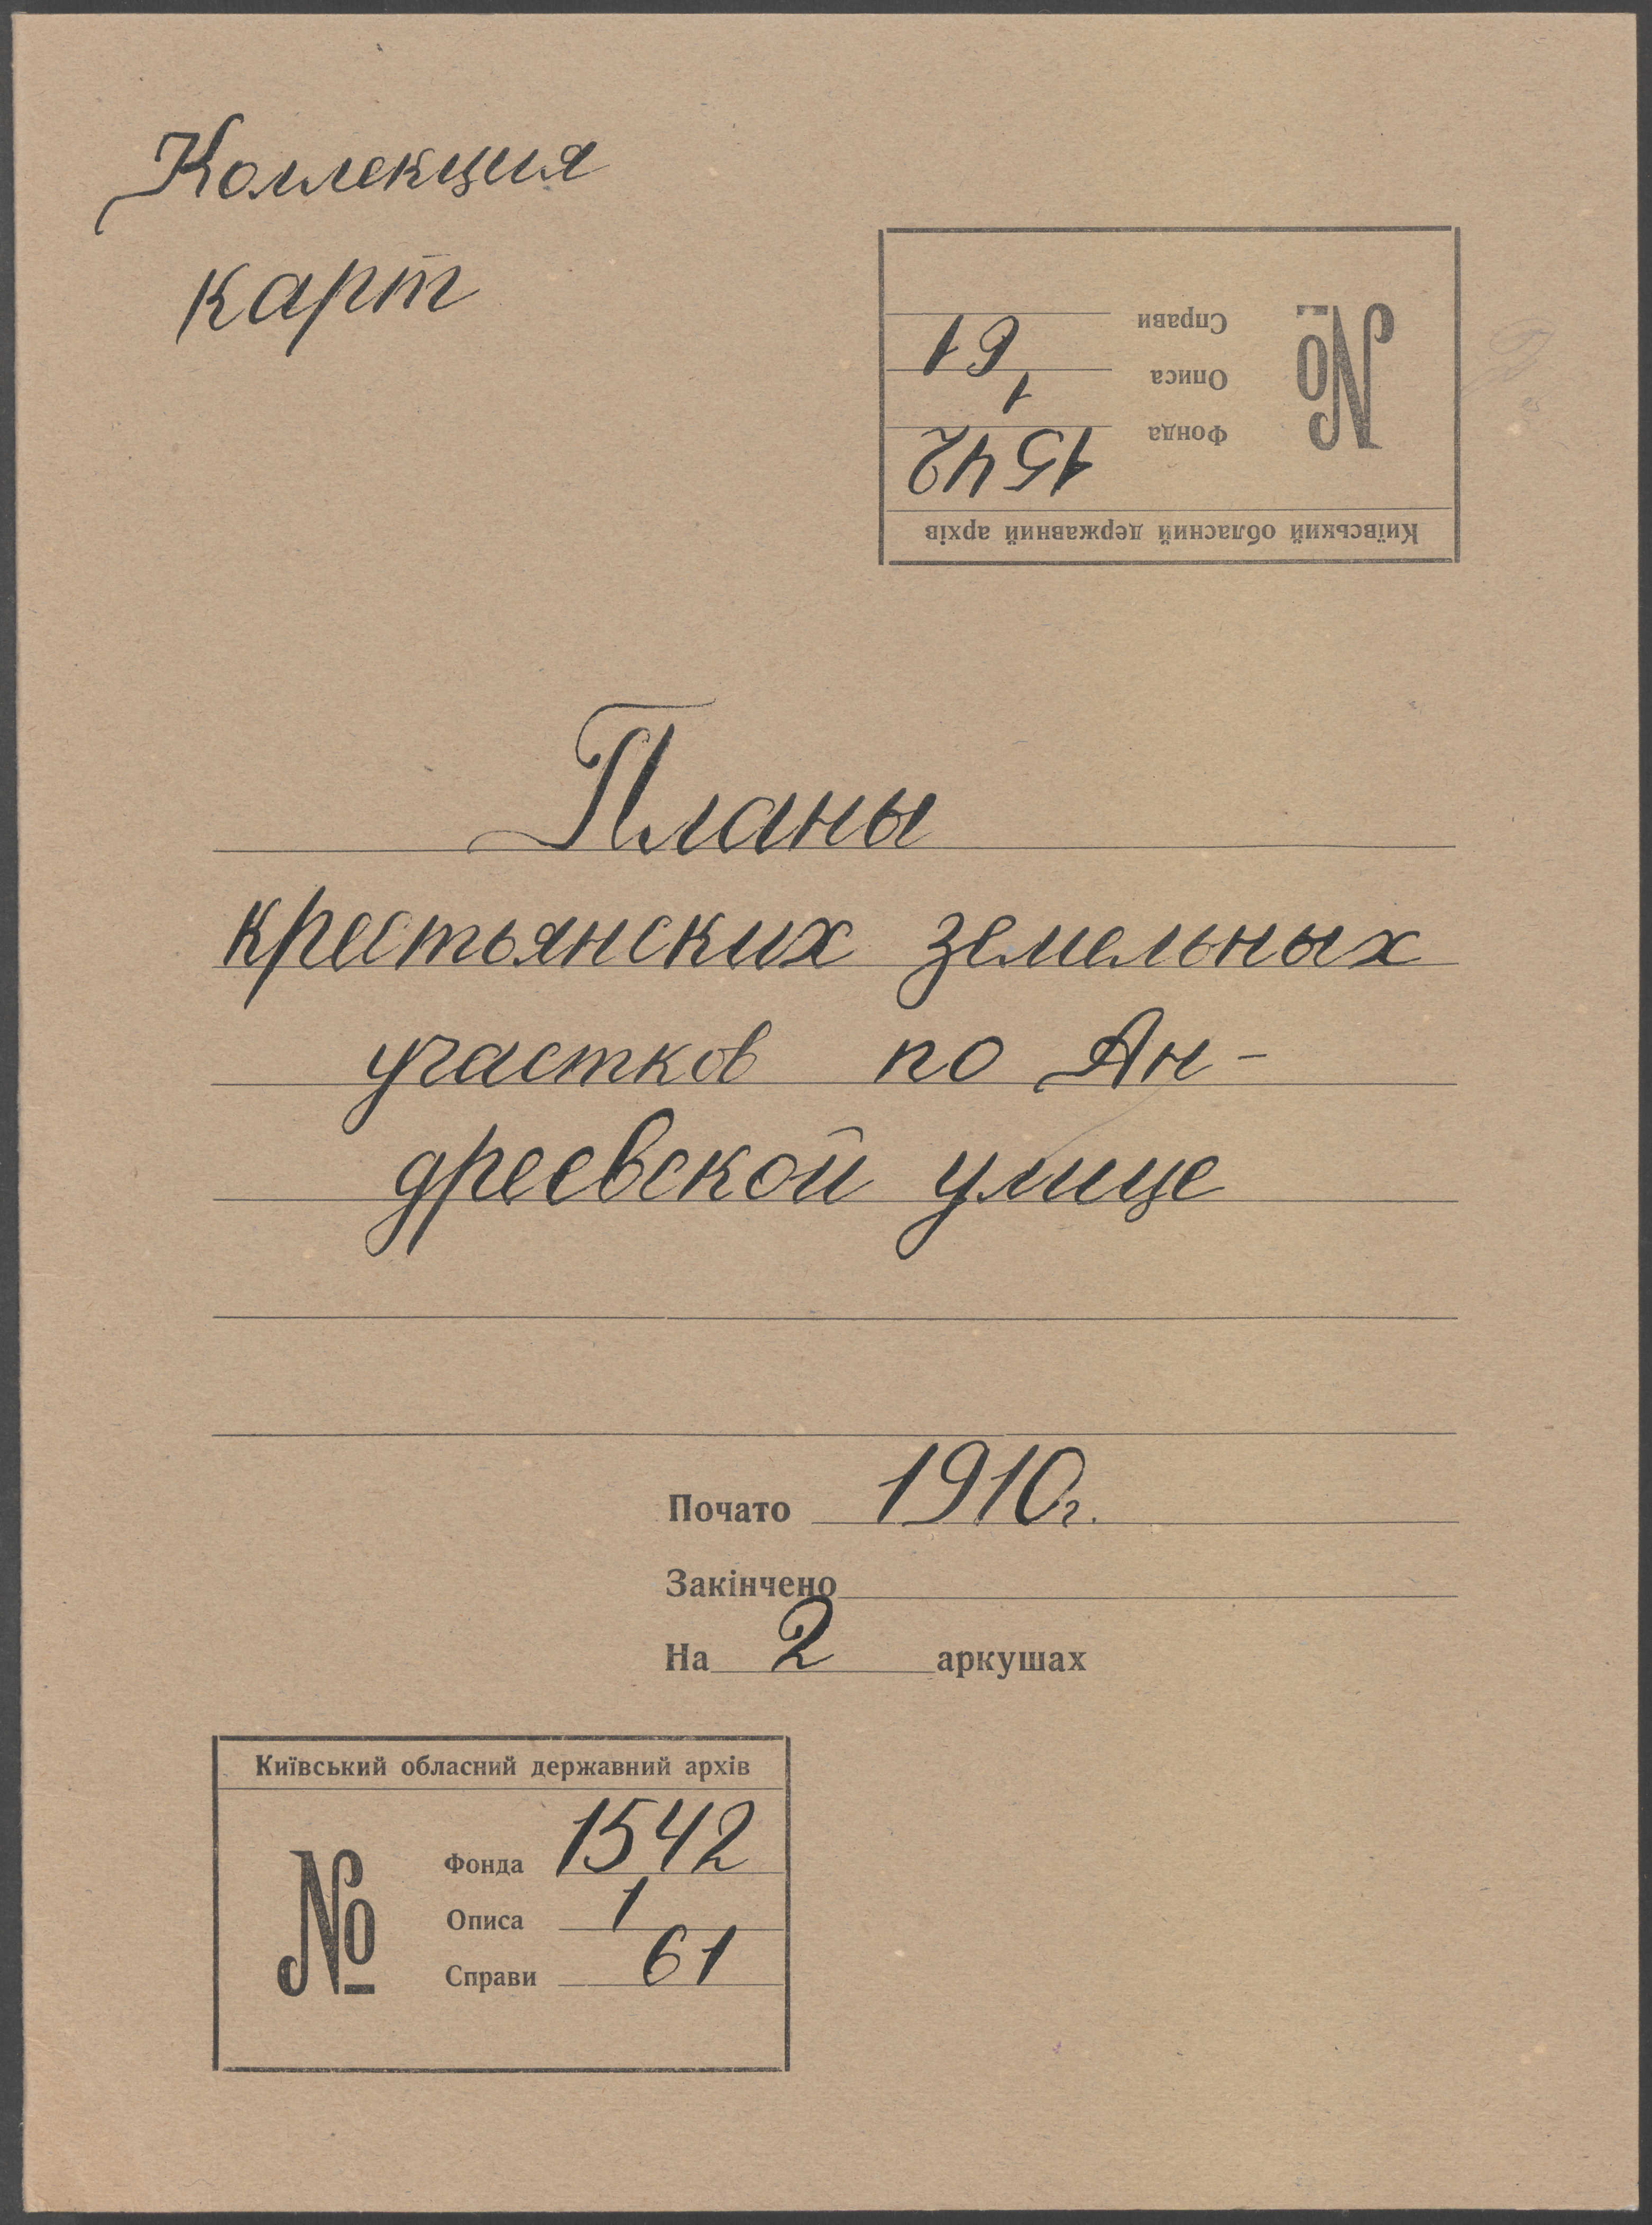 Коллекция
карт
Київський обласний державний архів
№
Фонда 1542
Описа 1
Справи 61
Планы
крестьянских земельных
участков по Ан-
дреевской улице
Почато 1910г.
Закінчено
На 2 аркушах
Київський обласний державний архів
№
Фонда 1542
Описа 1
Справи 61